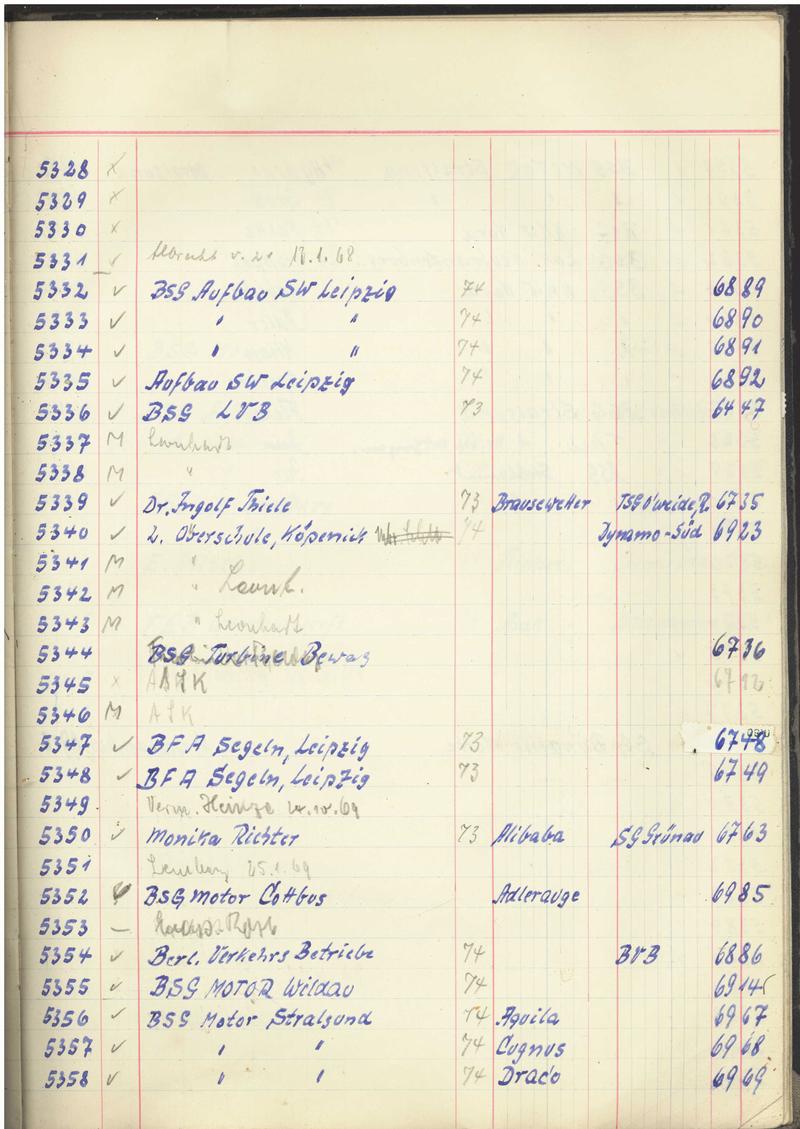 5328 x
5329 x
5330 x
5331 ✓ 13.1.68
5332 ✓ BSG Aufbau SW Leipzig 74 6889
5333 ✓ " " 74 6890
5334 ✓ " " 74 6891
5335 ✓ Aufbau SW Leipzig 74 6892
5336 ✓ BSG LVB 73 6447
5337 M Leonhardt
5338 M "
5339 ✓ Dr. Ingolf Thiele 73 Brausewetter TSG O'weide, R. 6735
5340 ✓ 2. Oberschule, Köpenick 74 Dynamo-Süd 6923
5341 M "
5342 M " Leonh.
5343 M " Leonhardt
5344 BSG Turbine Bewag 6736
5345 x ASK
5346 M ASK
5347 ✓ BFA Segeln, Leipzig 73 6748
5348 ✓ BFA Segeln, Leipzig 73 6749
5349 Verm. Heinze 24.10.69
5350 ✓ Monika Richter 73 Alibaba SG Grünau 6763
5351 25.1.69
5352 ✓ BSG Motor Cottbus Adlerauge 6985
5353 –
5354 ✓ Berl. Verkehrs Betriebe 74 BVB 6886
5355 ✓ BSG MOTOR Wildau 74 6914
5356 ✓ BSG Motor Stralsund 74 Aquila 6967
5357 ✓ " " 74 Cugnus 6968
5358 ✓ " " 74 Draco 6969